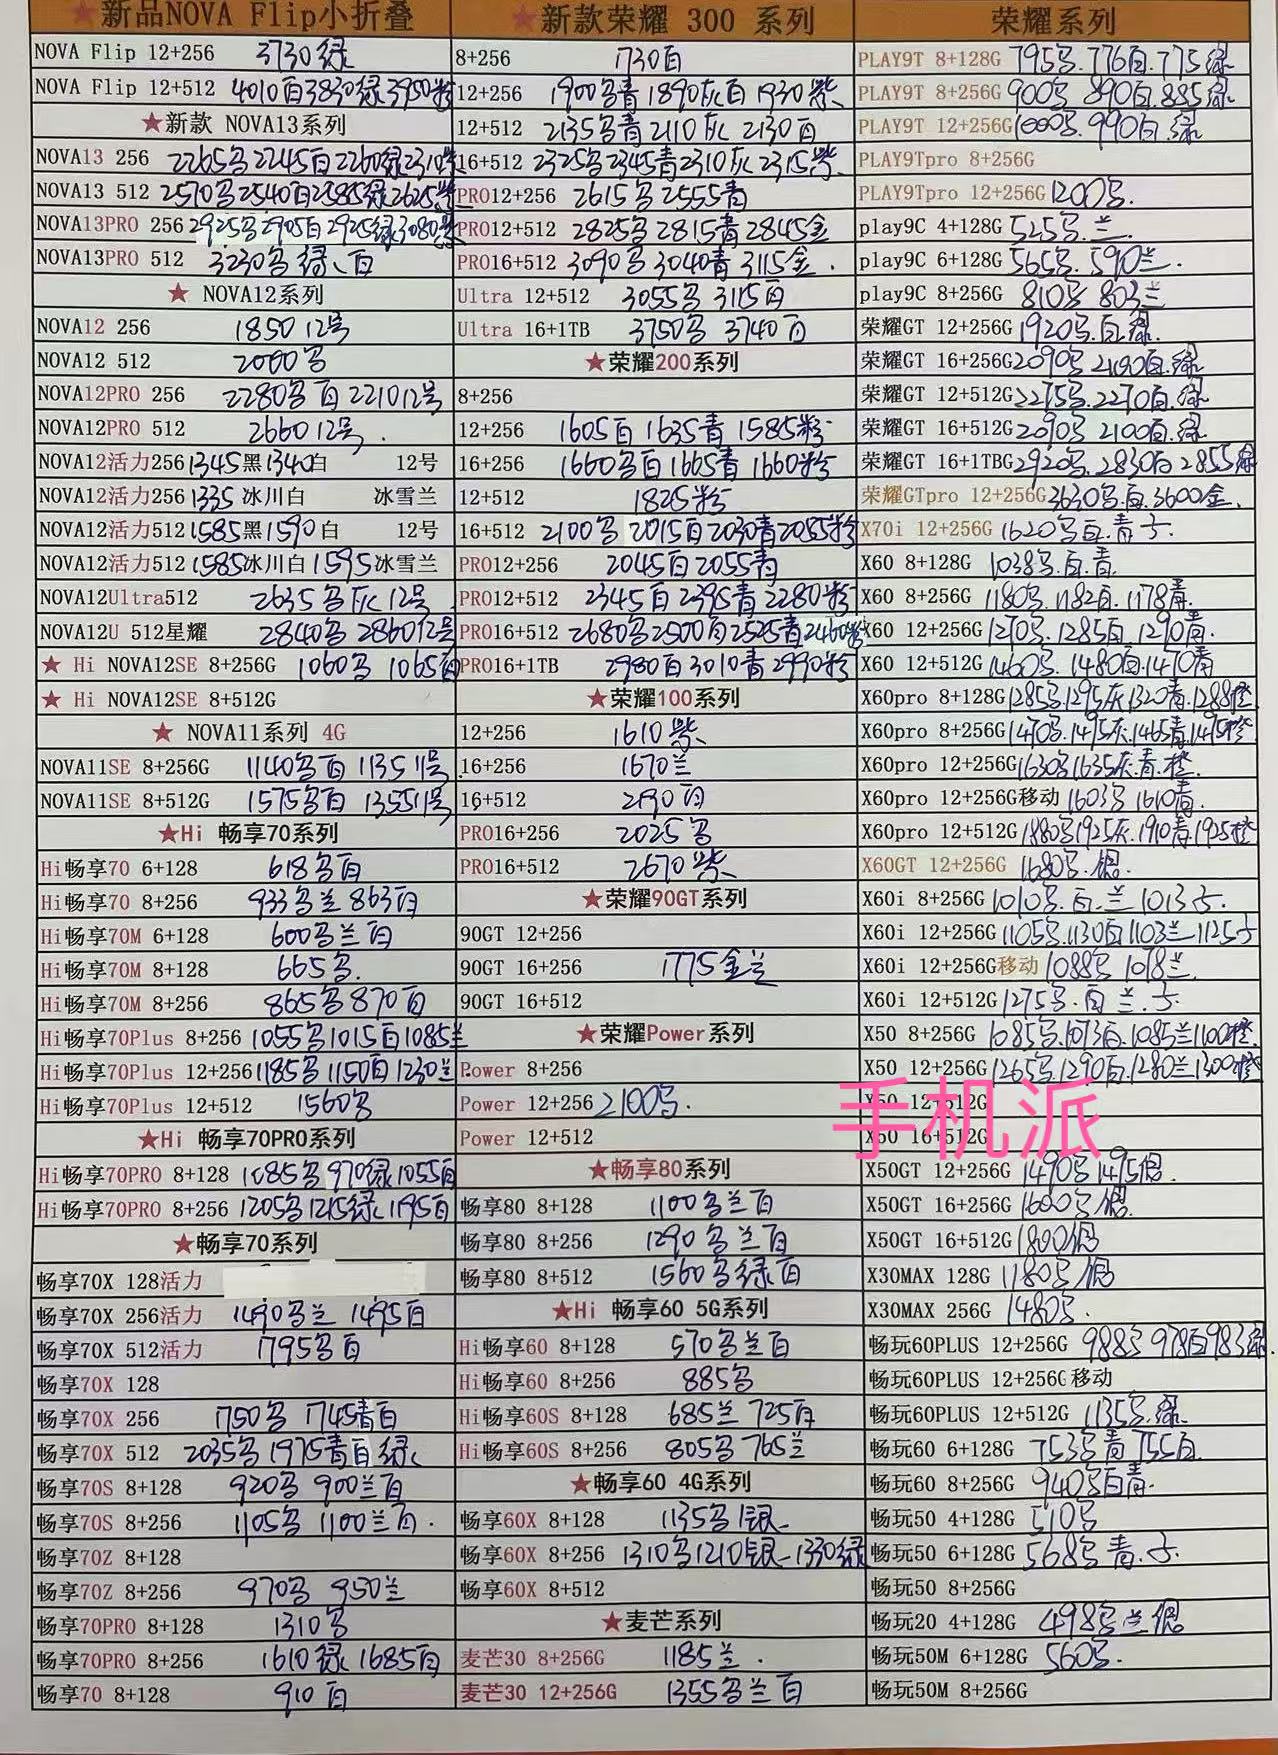 ★新品NOVA Flip小折叠
NOVA Flip 12+256 3730绿
NOVA Flip 12+512 4010白3830绿3950粉
★新款 NOVA13系列
NOVA13 256 2265黑2245白2260绿2310紫
NOVA13 512 2570黑2540白2585绿2625紫
NOVA13PRO 256 2925黑2905白2925绿3080紫
NOVA13PRO 512 3230黑绿、白
★ NOVA12系列
NOVA12 256 1850 12号
NOVA12 512 2000黑
NOVA12PRO 256 2280黑白2210 12号
NOVA12PRO 512 2660 12号.
NOVA12活力256 1345黑1340白 12号
NOVA12活力256 1335冰川白 冰雪兰
NOVA12活力512 1585黑1590白 12号
NOVA12活力512 1585冰川白1595冰雪兰
NOVA12Ultra512 2635黑灰12号
NOVA12U 512星耀 2840黑2860 12号
★ Hi NOVA12SE 8+256G 1060黑 1065白
★ Hi NOVA12SE 8+512G
★ NOVA11系列 4G
NOVA11SE 8+256G 1140黑白 1135 11号
NOVA11SE 8+512G 1575黑白 1355 11号
★Hi 畅享70系列
Hi畅享70 6+128 618黑白
Hi畅享70 8+256 933黑兰 863白
Hi畅享70M 6+128 600黑兰白
Hi畅享70M 8+128 665黑.
Hi畅享70M 8+256 865黑870白
Hi畅享70Plus 8+256 1055黑1015白1085兰
Hi畅享70Plus 12+256 1185黑1150白1230兰
Hi畅享70Plus 12+512 1560黑
★Hi 畅享70PRO系列
Hi畅享70PRO 8+128 1085黑970绿1055白
Hi畅享70PRO 8+256 1205黑1215绿1195白
★畅享70系列
畅享70X 128活力
畅享70X 256活力 1490黑兰 1495白
畅享70X 512活力 1795黑白
畅享70X 128
畅享70X 256 1750黑 1745青白
畅享70X 512 2035黑1975青白绿
畅享70S 8+128 920黑 900兰白
畅享70S 8+256 1105黑 1100兰白.
畅享70Z 8+128
畅享70Z 8+256 970黑 950兰
畅享70PRO 8+128 1310黑
畅享70PRO 8+256 1610绿 1685白
畅享70 8+128 910白
★新款荣耀 300 系列
8+256 1730白
12+256 1900黑青1890灰白1930紫
12+512 2135黑青2110灰 2130白
16+512 2325黑2345青2310灰2315紫
PRO12+256 2615黑2555青
PRO12+512 2825黑2815青2845金
PRO16+512 3090黑3040青3115金.
Ultra 12+512 3055黑 3115白
Ultra 16+1TB 3750黑 3740白
★荣耀200系列
8+256
12+256 1605白1635青1585粉
16+256 1660黑白1665青1660粉
12+512 1825粉
16+512 2100黑2015白2030青2055粉
PRO12+256 2045白2055青
PRO12+512 2345白2395青2280粉
PRO16+512 2680黑2500白2525青2460粉
PRO16+1TB 2980白3010青2990粉
★荣耀100系列
12+256 1610紫
16+256 1670兰
16+512 2190白
PRO16+256 2025黑
PRO16+512 2670紫
★荣耀90GT系列
90GT 12+256
90GT 16+256 1775金兰
90GT 16+512
★荣耀Power系列
Power 8+256
Power 12+256 2100黑.
Power 12+512
★畅享80系列
畅享80 8+128 1100黑兰白
畅享80 8+256 1290黑兰白
畅享80 8+512 1560黑绿白
★Hi 畅享60 5G系列
Hi畅享60 8+128 570黑兰白
Hi畅享60 8+256 885黑
Hi畅享60S 8+128 685兰 725白
Hi畅享60S 8+256 805黑765兰
★畅享60 4G系列
畅享60X 8+128 1135黑银
畅享60X 8+256 1310黑1210银1330绿
畅享60X 8+512
★麦芒系列
麦芒30 8+256G 1185兰.
麦芒30 12+256G 1355黑兰白
荣耀系列
PLAY9T 8+128G 795黑.776白.775绿
PLAY9T 8+256G 900黑 890白.885绿
PLAY9T 12+256G 1000黑.990白.绿
PLAY9Tpro 8+256G
PLAY9Tpro 12+256G 1200黑.
play9C 4+128G 525黑.兰.
play9C 6+128G 565黑.590兰.
play9C 8+256G 810黑 803兰
荣耀GT 12+256G 1920黑.白.绿.
荣耀GT 16+256G 2090黑 2100白.绿
荣耀GT 12+512G 2275黑.2270白.绿
荣耀GT 16+512G 2090黑 2100白.绿
荣耀GT 16+1TBG 2920黑.2830白2855绿
荣耀GTpro 12+256G 3630黑.白.3600金.
X70i 12+256G 1620黑白.青
X60 8+128G 1038黑.白.青
X60 8+256G 1180黑.1182白.1178青.
X60 12+256G 1270黑.1285白.1290青.
X60 12+512G 1460黑.1480白.1470青
X60pro 8+128G 1285黑.1295灰1320青.1288橙
X60pro 8+256G 1470黑.1495灰.1465青.1495橙
X60pro 12+256G 1630黑1635灰.青.橙.
X60pro 12+256G移动 1603黑1610青.
X60pro 12+512G 1880黑1925灰.1910青.1925橙
X60GT 12+256G 1680黑.银.
X60i 8+256G 1010黑.白.兰 1013
X60i 12+256G 1105黑.1130白1103兰1125
X60i 12+256G移动 1088黑 1078兰.
X60i 12+512G 1275黑.白兰.
X50 8+256G 1085黑.1073白.1085兰1100橙.
X50 12+256G 1265黑.1290白.1280兰1300橙
X50 12+512G
X50 16+512G
手机派
X50GT 12+256G 1490黑1495银.
X50GT 16+256G 1600黑银.
X50GT 16+512G 1800银
X30MAX 128G 1180黑银
X30MAX 256G 1480黑.
畅玩60PLUS 12+256G 988黑 978白983绿.
畅玩60PLUS 12+256G移动
畅玩60PLUS 12+512G 1135黑.绿.
畅玩60 6+128G 753黑青755白.
畅玩60 8+256G 940黑白青.
畅玩50 4+128G 510黑
畅玩50 6+128G 568黑.青.
畅玩50 8+256G
畅玩20 4+128G 498黑兰银
畅玩50M 6+128G 560黑.
畅玩50M 8+256G